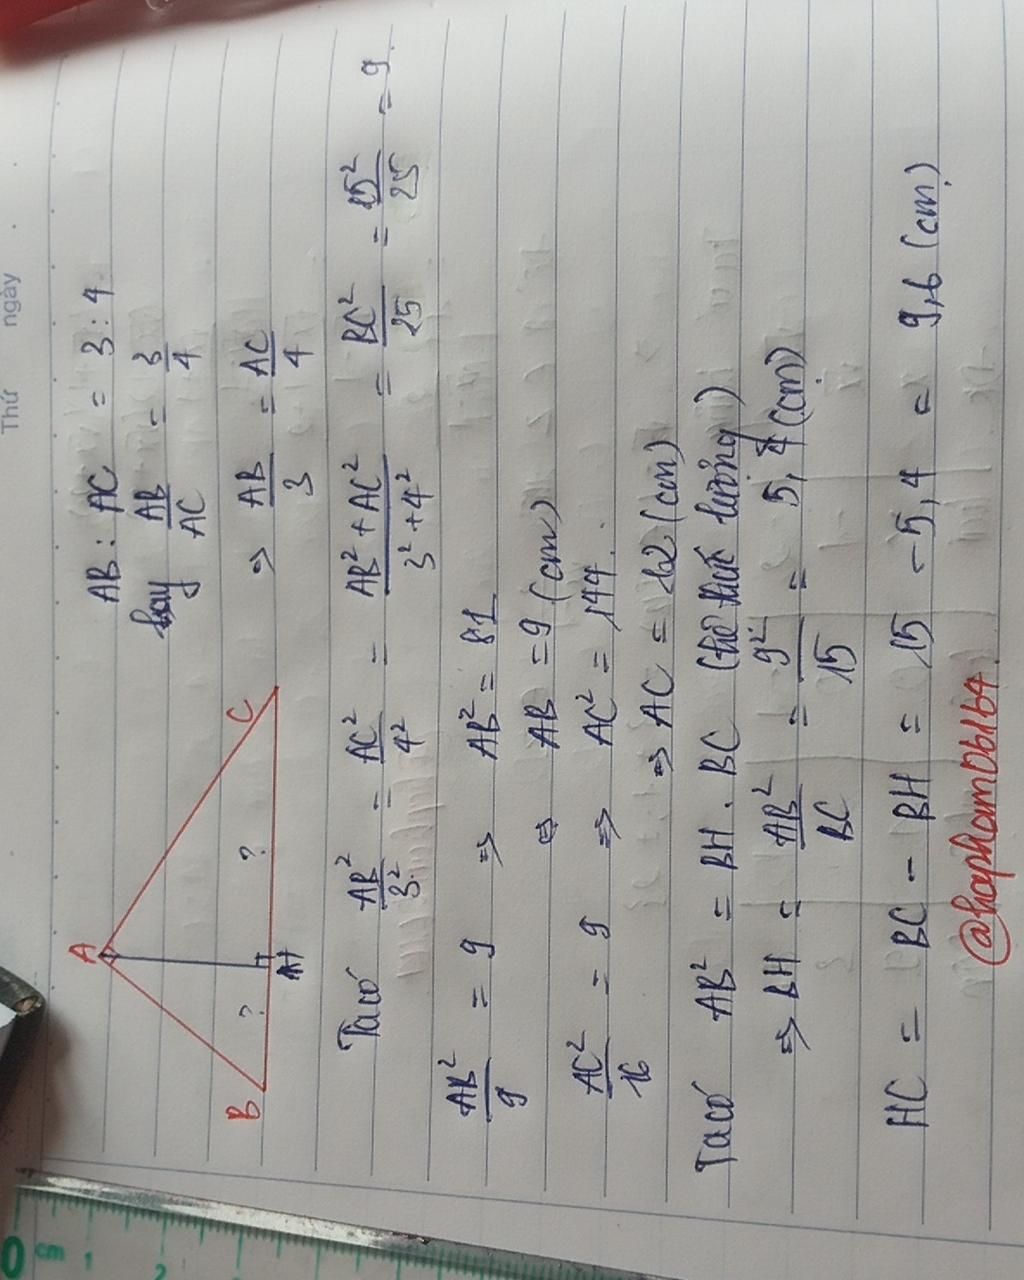 Thứ ngày
AB : AC = 3 : 4
hay AB/AC = 3/4
⇒ AB/3 = AC/4
A
B ? H ? C
Ta có AB²/3² = AC²/4² = AB² + AC²/3² + 4² = BC²/25 = 15²/25 = 9.
AB²/9 = 9 ⇒ AB² = 81
⇔ AB = 9 (cm)
AC²/16 = 9 ⇒ AC² = 144.
⇒ AC = 12 (cm)
Ta có AB² = BH . BC (hệ thức lượng)
⇒ BH = AB²/BC = 9²/15 = 5,4 (cm)
HC = BC - BH = 15 - 5,4 = 9,6 (cm)
@haphamDb1b4
0 cm 1 2